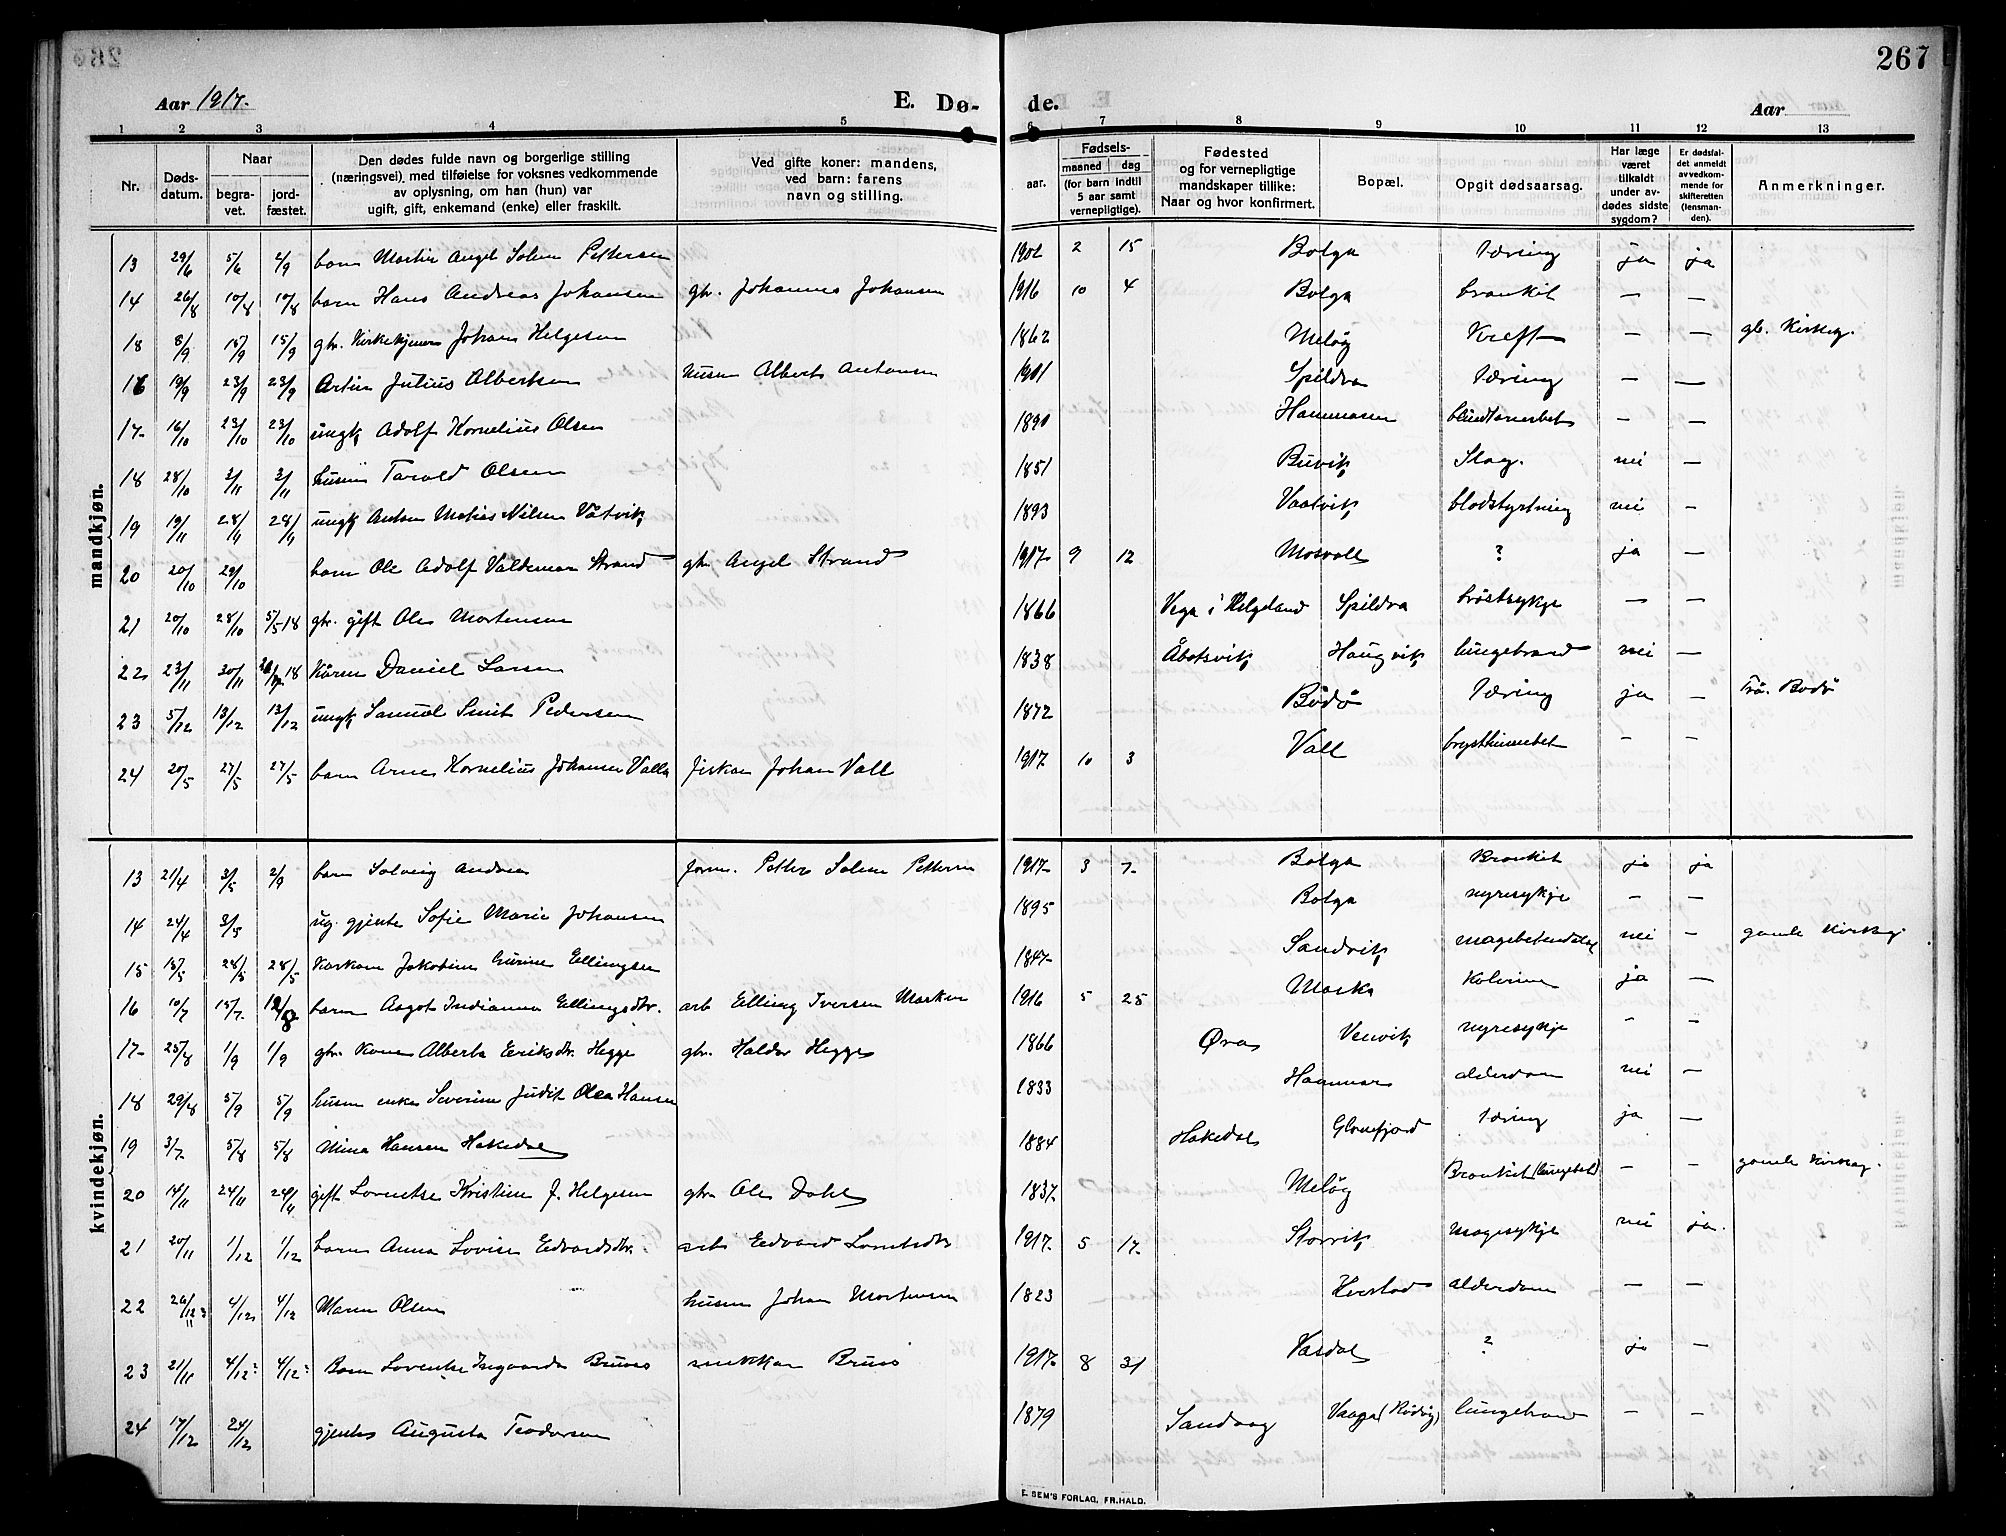 267
Aar 1917.
E. Dø-
de.
Aar
1 2 3 4 5 6 7 8 9 10 11 12 13
Nr.
Døds-
datum.
Naar
begra-
vet.
jord-
fæstet.
Den dødes fulde navn og borgerlige stilling
(næringsvei), med tilføielse for voksnes vedkommende
av oplysning, om han (hun) var
ugift, gift, enkemand (enke) eller fraskilt.
Ved gifte koner: mandens,
ved barn: farens
navn og stilling.
Fødsels-
aar.
maaned
dag
(for barn indtil
5 aar samt
vernepligtige).
Fødested
og for vernepligtige
mandskaper tillike:
Naar og hvor konfirmert.
Bopæl.
Opgit dødsaarsag.
Har læge
været
tilkaldt
under av-
dødes sidste
sygdom?
Er dødsfal-
det anmeldt
av vedkom-
mende for
skifteretten
(lensman-
den).
Anmerkninger.
mandkjøn.
13 29/6 5/6 2/9 barn Martin Angel Solem Pettersen 1902 2 15 Bolga Tæring ja ja
14 26/8 10/8 10/8 barn Hans Andreas Johansen gbr. Johannes Johansen 1916 10 4 Bolga bronkit — —
18 8/9 15/9 15/9 gbr. Kirketjener Johan Helgesen 1862 Meløy Kreft — — gl. Kirkeg.
16 19/9 23/9 23/9 Artur Julius Albertsen husm Albert Antonsen 1901 Spildra Tæring — —
17 16/10 23/10 23/10 ungk Adolf Kornelius Olsen 1890 Hammaren — —
18 28/10 3/11 3/11 husm Tarald Olsen 1851 Buvik Slag. nei —
19 19/11 28/11 28/11 ungk Anton Matias Nilsen Våtvik 1893 Vaatvik blodstyrtning nei —
20 20/10 29/10 barn Ole Adolf Valdemar Strand gbr Angel Strand 1917 9 12 Mosvoll ? ja —
21 20/10 28/10 5/5-18 gbr. gift Ole Mortensen 1866 Vega i Helgeland Spildra brøstsykje — —
22 23/11 30/11 18 Kåren Daniel Larsen 1838 Åbotsvik Haugvik lungebrand nei —
23 5/12 13/12 13/12 ungk Samuel Smit Pedersen 1872 Bodø Tæring ja — Frå Bodø
24 20/5 27/5 27/5 barn Arne Kornelius Johansen Valla fiskar Johan Vall 1917 10 3 Vall brysthinnebet — —
kvindekjøn.
13 21/4 3/5 2/9 barn Solveig Andrea Petter Solem Pettersen 1917 3 7 Bolga Bronkit ja ja
14 24/4 3/5 ug. gjente Sofie Marie Johansen 1895 Bolga nyresykje — —
15 15/5 28/5 28/5 Karkone Jakobine Ellingsen 1847 Sandvik nei — gamle Kirkeg.
16 10/7 15/7 barn Aagot Indianna Ellingsdtr. arb Elling Iversen Marken 1916 5 25 Marka Kolerine ja —
17 25/8 1/9 1/9 gbr. Kone Alberta Eriksdtr. Hegge gbr. Haldor Hegge 1866 Øra Venvik nyresykje — —
18 29/8 5/9 5/9 husm enke Severine Judit Olea Hansen 1833 Hammar alderdom nei —
19 3/7 5/8 5/8 Mina Hansen Hakedal 1884 Hakedal Glomfjord Tæring ja —
20 14/11 24/11 24/11 gift Lorentse Kristine J. Helgesen gbr Ole Dahl 1837 Meløy Bronkit (lungebet) — — gamle Kirkeg.
21 20/11 1/12 1/12 barn Anna Lovise Edvardsdtr. arb Edvard 1917 5 17 Storvik magesykje nei ja.
22 4/12 4/12 Maren Olsen husm Johan Mortensen 1823 Herstad alderdom — —
23 21/11 4/12 4/12 Barn Lorentse Ingvarda Bruvo snekkar Bruvo 1917 8 31 Vasdal ? ja —
24 17/12 24/12 gjente Augusta Teodorsen 1879 Sandvaag Vaage (Rødøy) lungebrand — —
E. SEM'S FORLAG, FR.HALD.